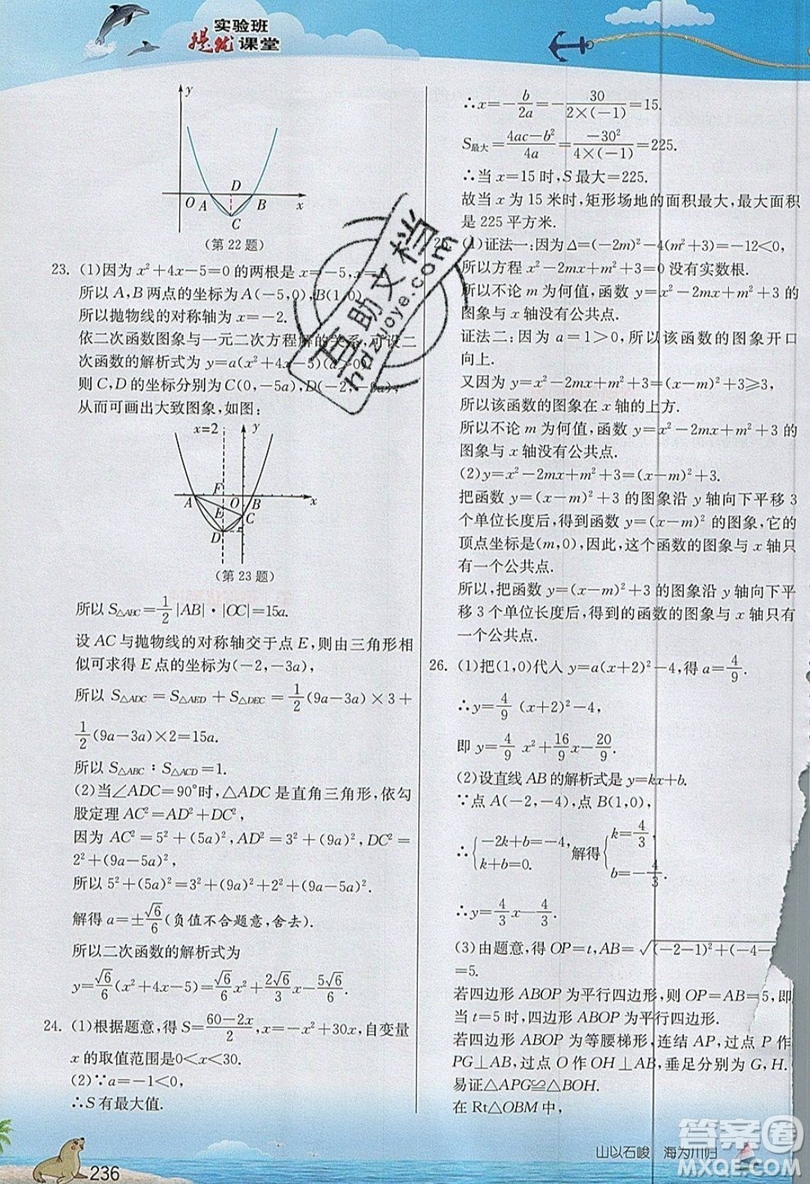 实验班
提优课堂
y
D
O
A
B
x
C
(第22题)
23. (1)因为x²+4x-5=0的两根是x=-5,x=
所以A,B两点的坐标为A(-5,0),B(1,0).
所以抛物线的对称轴为x=-2.
依二次函数图象与一元二次方程解的关系,可设二
次函数的解析式为y=a(x²+4x-5)(a>0),
则C,D的坐标分别为C(0,-5a),D(-2,-9a),
从而可画出大致图象,如图:
x=2
y
F
A
O
B
x
E
C
D
(第23题)
所以S△ABC=1/2|AB|·|OC|=15a.
设AC与抛物线的对称轴交于点E,则由三角形相
似可求得E点的坐标为(-2,-3a),
所以S△ADC=S△AED+S△DEC=1/2(9a-3a)×3+
1/2(9a-3a)×2=15a.
所以S△ABC:S△ACD=1.
(2)当∠ADC=90°时,△ADC是直角三角形,依勾
股定理AC²=AD²+DC²,
因为AC²=5²+(5a)²,AD²=3²+(9a)²,DC²=
2²+(4a)²,
所以5²+(5a)²=3²+(9a)²+2²+(4a)².
解得a=±√6/6(负值不合题意,舍去).
所以二次函数的解析式为
y=√6/6(x²+4x-5)=√6/6x²+2√6/3x-5√6/6.
24. (1)根据题意,得S=60-2x/2,x=-x²+30x,自变量
x的取值范围是0<x<30.
(2)∵a=-1<0,
∴S有最大值.
236
∴x=-b/2a=-30/2×(-1)=15.
S最大=4ac-b²/4a=-30²/4×(-1)=225.
∴当x=15时,S最大=225.
故当x为15米时,矩形场地的面积最大,最大面积
是225平方米.
(1)证法一:因为Δ=(-2m)²-4(m²+3)=-12<0,
所以方程x²-2mx+m²+3=0没有实数根.
所以不论m为何值,函数y=x²-2mx+m²+3的
图象与x轴没有公共点.
证法二:因为a=1>0,所以该函数的图象开口
向上.
又因为y=x²-2mx+m²+3=(x-m)²+3≥3,
所以该函数的图象在x轴的上方.
所以不论m为何值,函数y=x²-2mx+m²+3的
图象与x轴没有公共点.
(2)y=x²-2mx+m²+3=(x-m)²+3.
把函数y=(x-m)²+3的图象沿y轴向下平移3
个单位长度后,得到函数y=(x-m)²的图象,它的
顶点坐标是(m,0),因此,这个函数的图象与x轴只
有一个公共点.
所以,把函数y=x²-2mx+m²+3的图象沿y轴向
下平移3个单位长度后,得到的函数的图象与x轴只有
一个公共点.
26. (1)把(1,0)代入y=a(x+2)²-4,得a=4/9.
∴y=4/9(x+2)²-4,
即y=4/9x²+16/9x-20/9.
(2)设直线AB的解析式是y=kx+b.
∵点A(-2,-4),点B(1,0),
∴{-2k+b=-4, k+b=0. 解得{k=4/3, b=-4/3.
∴y=4/3x-4/3.
(3)由题意,得OP=t,AB=√(-2-1)²+(-4-
=5.
若四边形ABOP为平行四边形,则OP=AB=5,即
当t=5时,四边形ABOP为平行四边形.
若四边形ABOP为等腰梯形,连结AP,过点P作
PG⊥AB,过点O作OH⊥AB,垂足分别为G,H.
易证△APG≌△BOH.
在Rt△OBM中,
山以石峻 海为川归
互助文档
hdzuoye.com
答案圈
MXQE.COM